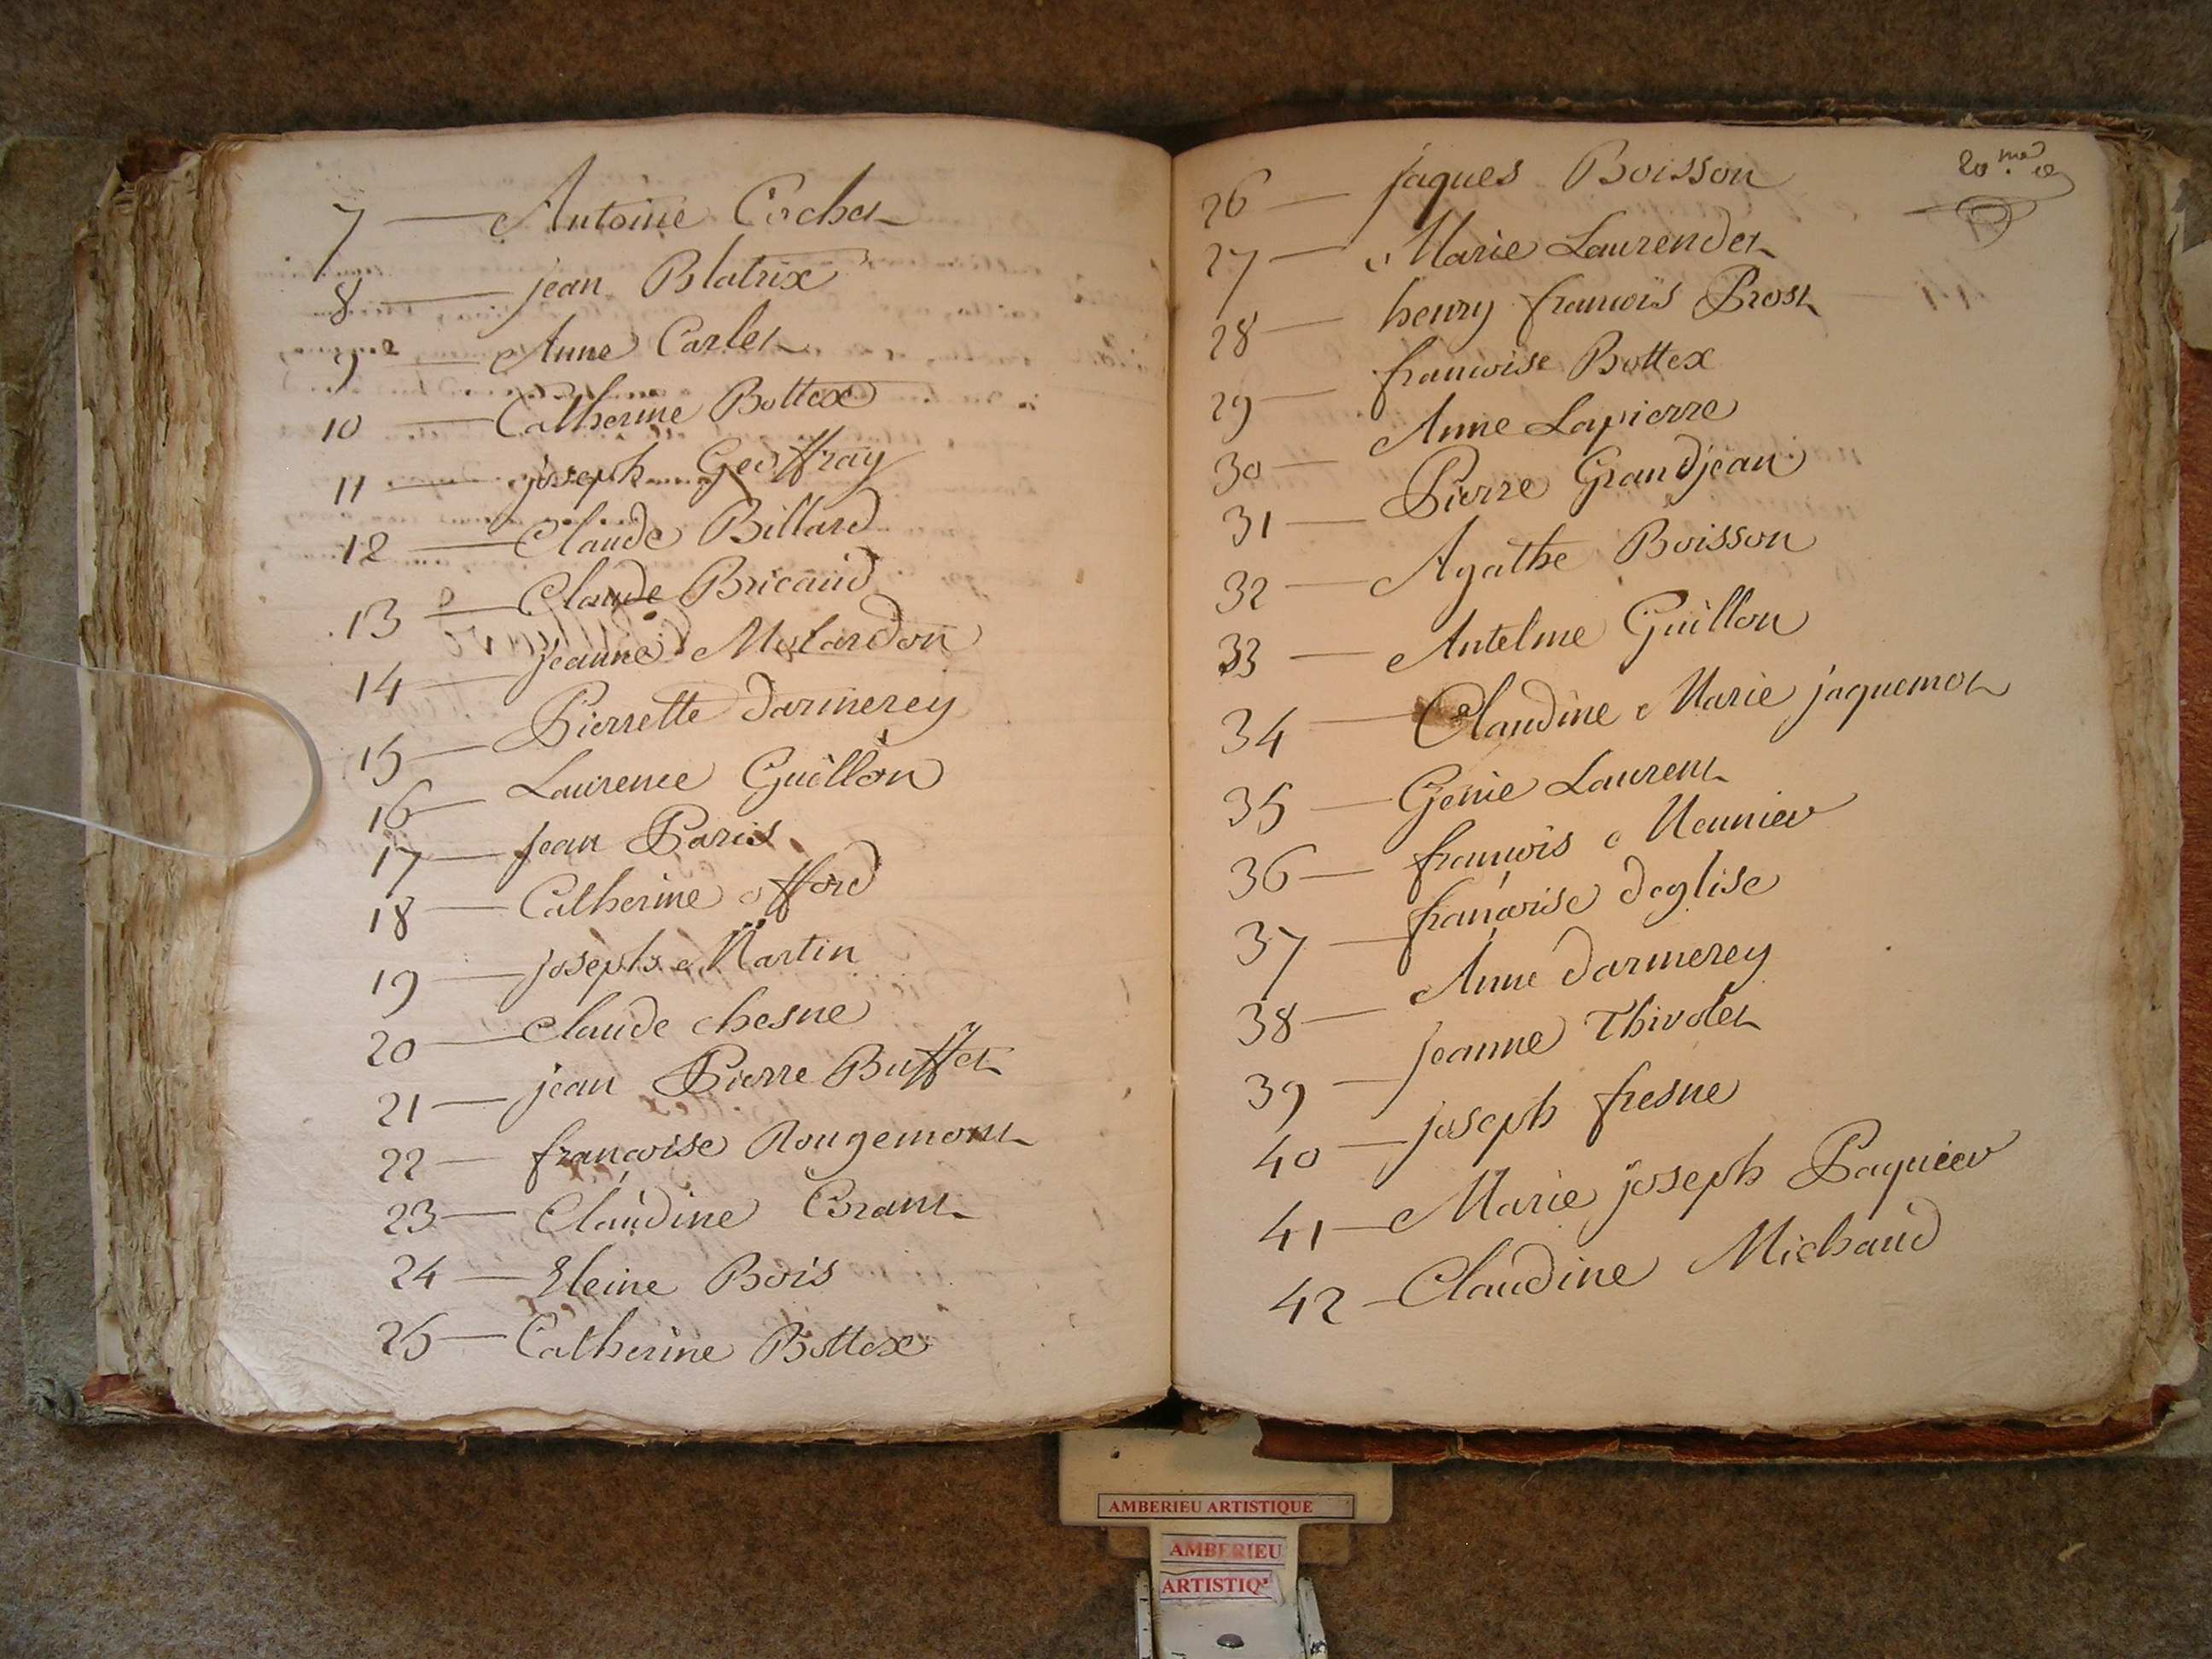 7 — Antoine Cochet
8 — jean Blatrix
9 — Anne Carlet
10 — Catherine Bottex
11 — joseph Geoffray
12 — Claude Billard
13 — Claude Bricaud
14 — jeanne Molardon
15 — Pierrette darmerey
16 — Laurence Guillon
17 — jean Paris
18 — Catherine offord
19 — joseph Martin
20 — Claude chesne
21 — jean Pierre Buffet
22 — françoise Rougemont
23 — Claudine
24 — Eleine Bois
25 — Catherine Bottex
20me
26 — jaques Boisson
27 — Marie Laurendet
28 — henry francois Prost
29 — francoise Bottex
30 — Anne Lapierre
31 — Pierre Grandjean
32 — Agathe Boisson
33 — Antelme Guillon
34 — Claudine Marie jaquemot
35 — Genie Laurent
36 — françois Meunier
37 — françoise deglise
38 — Anne darmerey
39 — jeanne Thivolet
40 — joseph fresne
41 — Marie joseph Paquier
42 — Claudine Michaud
AMBERIEU ARTISTIQUE
AMBERIEU
ARTISTIQ